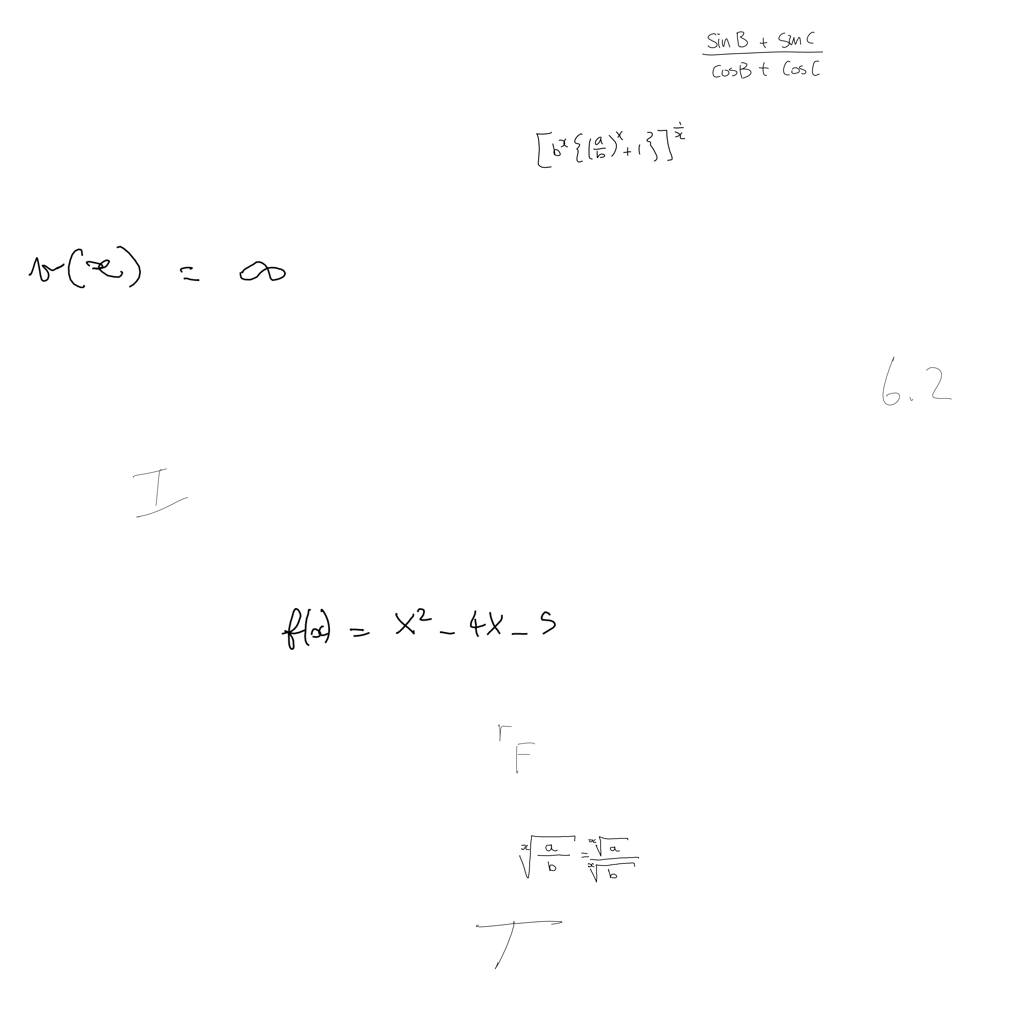 \frac{\sin B + \sin C}{\cos B + \cos C}
\left[b^x\left\{\left(\frac{a}{b}\right)^x+1\right\}\right]^{\frac{1}{x}}
v(x) = \infty
6.2
I
f(x) = x^2 - 4x - 5
^{r}F
\sqrt[x]{\frac{a}{b}} = \frac{\sqrt[x]{a}}{\sqrt[x]{b}}
T